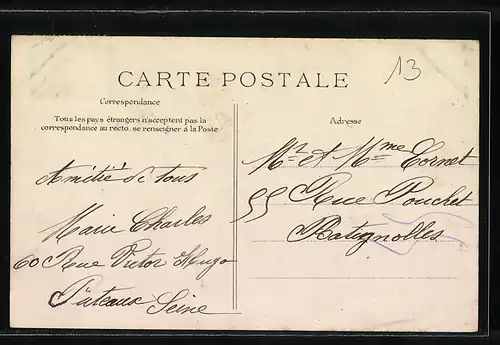 13
CARTE POSTALE
Correspondance
Tous les pays étrangers n'acceptent pas la
correspondance au recto. se renseigner à la Poste
Amitié de tous
Marie Charles
60 Rue Victor Hugo
Puteaux Seine
Adresse
Mr et Mme Cornet
55 Rue Pouchet
Batignolles